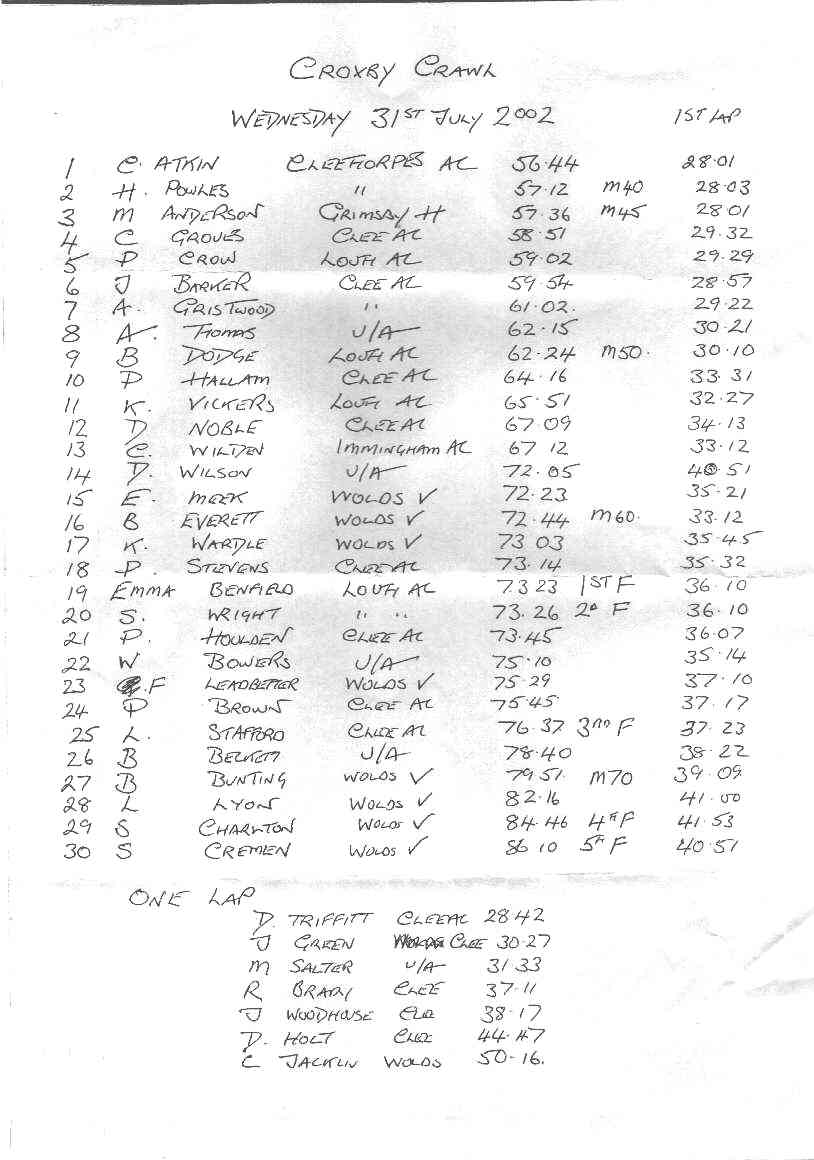 CROXBY CRAWL
WEDNESDAY 31ST JULY 2002 1ST LAP
1 C. ATKIN CLEETHORPES AC 56.44 28.01
2 H. POWLES " 57.12 M40 28.03
3 M ANDERSON GRIMSBY H 57.36 M45 28.01
4 C GROVES CLEE AC 58.51 29.32
5 P CROW LOUTH AC 59.02 29.29
6 J BARKER CLEE AC 59 54 28.57
7 A. GRISTWOOD " 61.02. 29.22
8 A. THOMAS U/A 62.15 30.21
9 B DODGE LOUTH AC 62.24 M50. 30.10
10 P HALLAM CLEE AC 64.16 33.31
11 K. VICKERS LOUTH AC 65.51 32.27
12 D NOBLE CLEE AC 67.09 34.13
13 C. WILDEN IMMINGHAM AC 67 12 33.12
14 D. WILSON U/A 72.05 40.51
15 E. MEEK WOLDS V 72.23 35.21
16 B EVERETT WOLDS V 72.44 M60. 33.12
17 K. WARDLE WOLDS V 73 03 35.45
18 P. STEVENS CLEE AC 73.14 35.32
19 EMMA BENFIELD LOUTH AC 73 23 1ST F 36.10
20 S. WRIGHT " " 73.26 2D F 36.10
21 P. HOULDEN CLEE AC 73.45 36.07
22 W BOWERS U/A 75.10 35.14
23 F LEADBETTER WOLDS V 75.29 37.10
24 P BROWN CLEE AC 75.45 37.17
25 L. STAFFORD CLEE AC 76.37 3RD F 37.23
26 B BECKETT U/A 78.40 38.22
27 B BUNTING WOLDS V 79.51. M70 39.09
28 L LYON WOLDS V 82.16 41.00
29 S CHARLTON WOLDS V 84.46 4TH F 41.53
30 S CREMEN WOLDS V 86 10 5TH F 40.51
ONE LAP
D. TRIFFITT CLEE AC 28.42
J GREEN CLEE 30.27
M SALTER U/A 31.33
R BRADY CLEE 37.11
J WOODHOUSE CLEE 38.17
D. HOLT CLEE 44.47
C JACKLIN WOLDS 50-16.